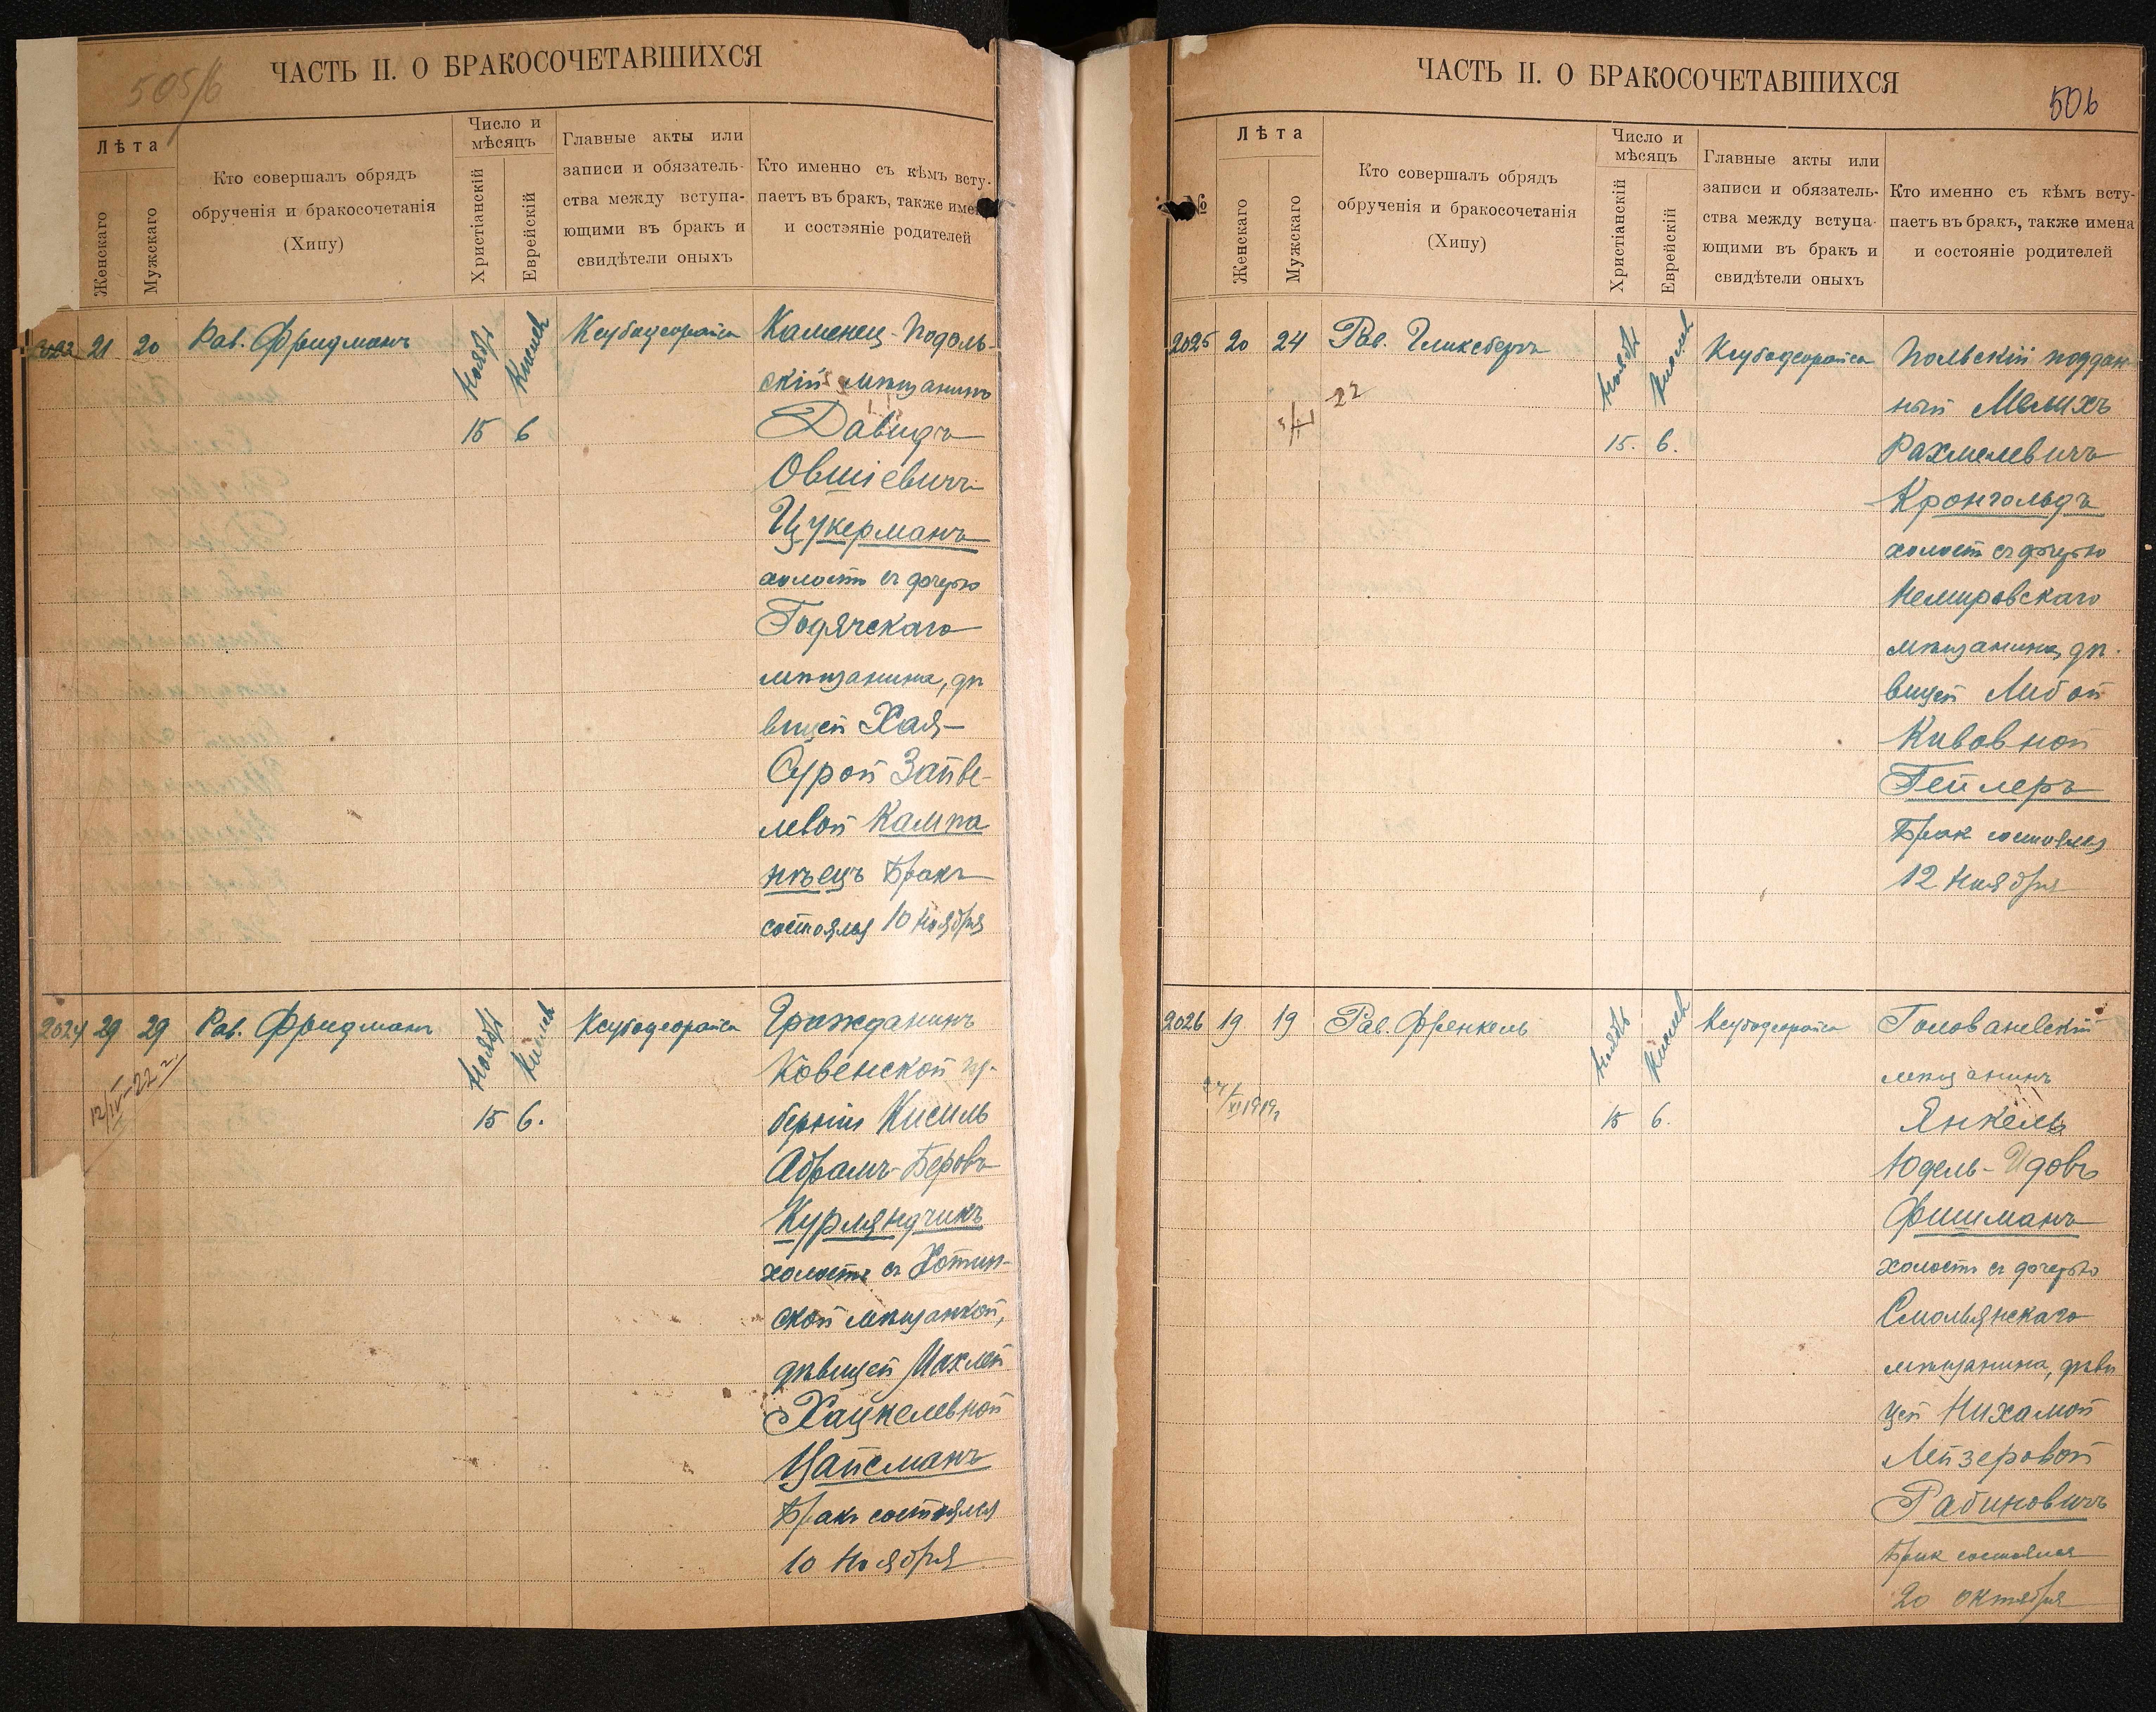 505/б
ЧАСТЬ II. О БРАКОСОЧЕТАВШИХСЯ
Лѣта
Женскаго
Мужскаго
Кто совершалъ обрядъ
обрученія и бракосочетанія
(Хипу)
Число и
мѣсяцъ
Христіанскій
Еврейскій
Главные акты или
записи и обязатель-
ства между вступа-
ющими въ бракъ и
свидѣтели оныхъ
Кто именно съ кѣмъ всту-
паетъ въ бракъ, также имена
и состэяніе родителей
2023 21 20 Рав. Фридманъ Ноябрь Кислев Ксубадеорайса
15 6
Каменец-Подоль-
скій мѣщанинъ
Давидъ
Овшіевичъ
Цукерманъ
холостъ съ дочерью
Гадячскаго
мѣщанина, дѣ
вицей Хая-
Сурой Зайве-
левой Кампа
нѣецъ Бракъ
состоялся 10 Ноября
2024 29 29 Рав. Фридманъ Ноябрь Кислев Ксубадеорайса
12/IV-22 г.
15 6.
Гражданинъ
Ковенской гу-
берніи Кисиль
Абрамъ-Беровъ
Курляндчикъ
холостъ съ Хотин-
ской мѣщанкой,
дѣвицей Махлей
Хацкелевной
Цайсманъ
Бракъ состоялся
10 Ноября
ЧАСТЬ II. О БРАКОСОЧЕТАВШИХСЯ
506
№
Лѣта
Женскаго
Мужскаго
Кто совершалъ обрядъ
обрученія и бракосочетанія
(Хипу)
Число и
мѣсяцъ
Христіанскій
Еврейскій
Главные акты или
записи и обязатель-
ства между вступа-
ющими въ бракъ и
свидѣтели оныхъ
Кто именно съ кѣмъ всту-
паетъ въ бракъ, также имена
и состояніе родителей
2025 20 24 Рав. Гликсбергъ Ноябрь Кислев Ксубадеорайса
22
15. 6.
Польскій поддан
ный Мелихъ
Рахмелевичъ
Кронгольдъ
холост съ дочерью
Немировскаго
мѣщанина, дѣ-
вицей Либой
Кивовной
Гейлеръ
Брак состоялся
12 Ноября
2026 19 19 Рав. Френкель Ноябрь Кислев Ксубадеорайса
15 6.
Голованевскій
мѣщанинъ
Янкель
Юдель-Идовъ
Фишманъ
холостъ съ дочерью
Смольянскаго
мѣщанина, дѣви
цей Нихамой
Лейзеровой
Рабиновичъ
Брак состоялся
20 октября